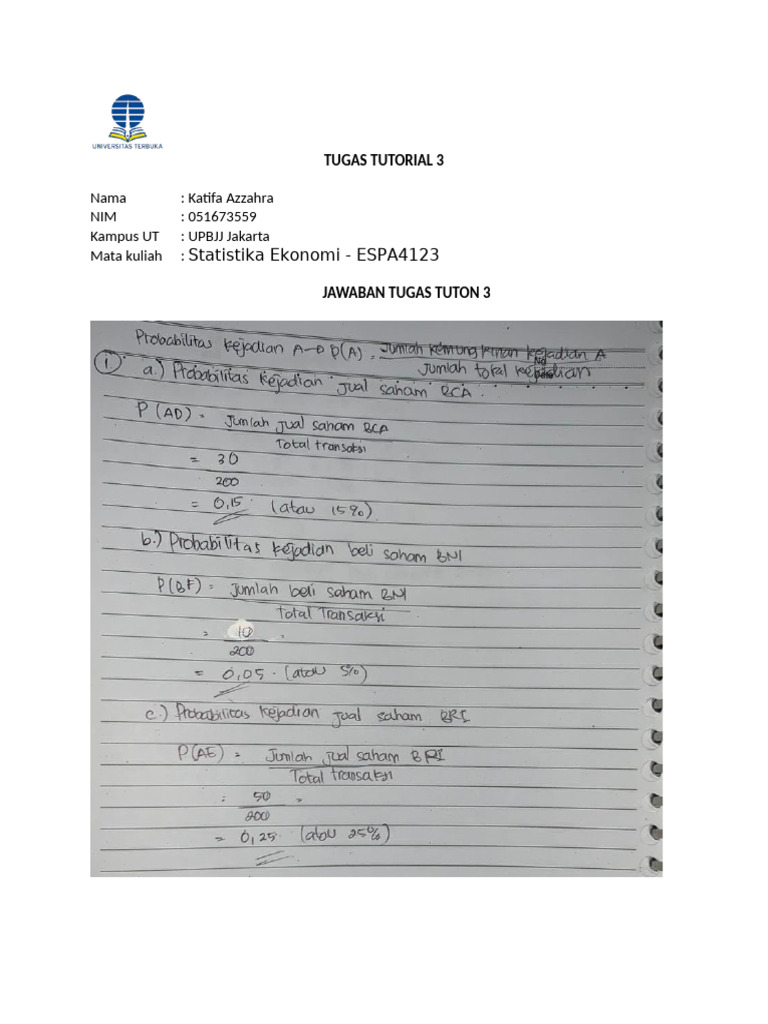 UNIVERSITAS TERBUKA
TUGAS TUTORIAL 3
Nama : Katifa Azzahra
NIM : 051673559
Kampus UT : UPBJJ Jakarta
Mata kuliah : Statistika Ekonomi - ESPA4123
JAWABAN TUGAS TUTON 3
Probabilitas kejadian A → P(A) = Jumlah kemungkinan kejadian A
Jumlah total kejadian
① a.) Probabilitas kejadian jual saham BCA.
P (AD) = Jumlah jual saham BCA
Total transaksi
= 30
200
= 0,15 (atau 15%)
b.) Probabilitas kejadian beli saham BNI
P(BF) = Jumlah beli saham BNI
Total Transaksi
= 10 =
200
= 0,05 (atau 5%)
c.) Probabilitas kejadian jual saham BRI
P(AE) = Jumlah jual saham BRI
Total transaksi
= 50 =
200
= 0,25 (atau 25%)